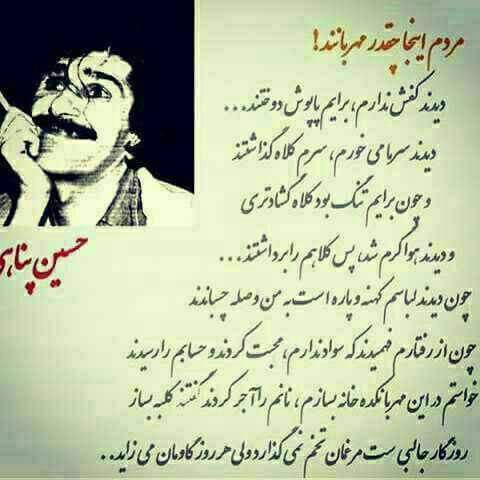 مردم اینجا چقدر مهربانند!
دیدند کفش ندارم، برایم پاپوش دوختند...
دیدند سرما می خورم، سرم کلاه گذاشتند
و چون برایم تنگ بود کلاه گشادتری
و دیدند هوا گرم شد، پس کلاهم را برداشتند...
چون دیدند لباسم کهنه و پاره است به من وصله چسباندند
چون از رفتارم فهمیدند که سواد ندارم، محبت کردند و حسابم را رسیدند
خواستم در این مهربانکده خانه بسازم، نانم را آجر کردند گفتند کلبه بساز
روزگار جالبی ست مرغمان تخم نمی گذارد ولی هر روز گاومان می زاید..
حسین پناهی